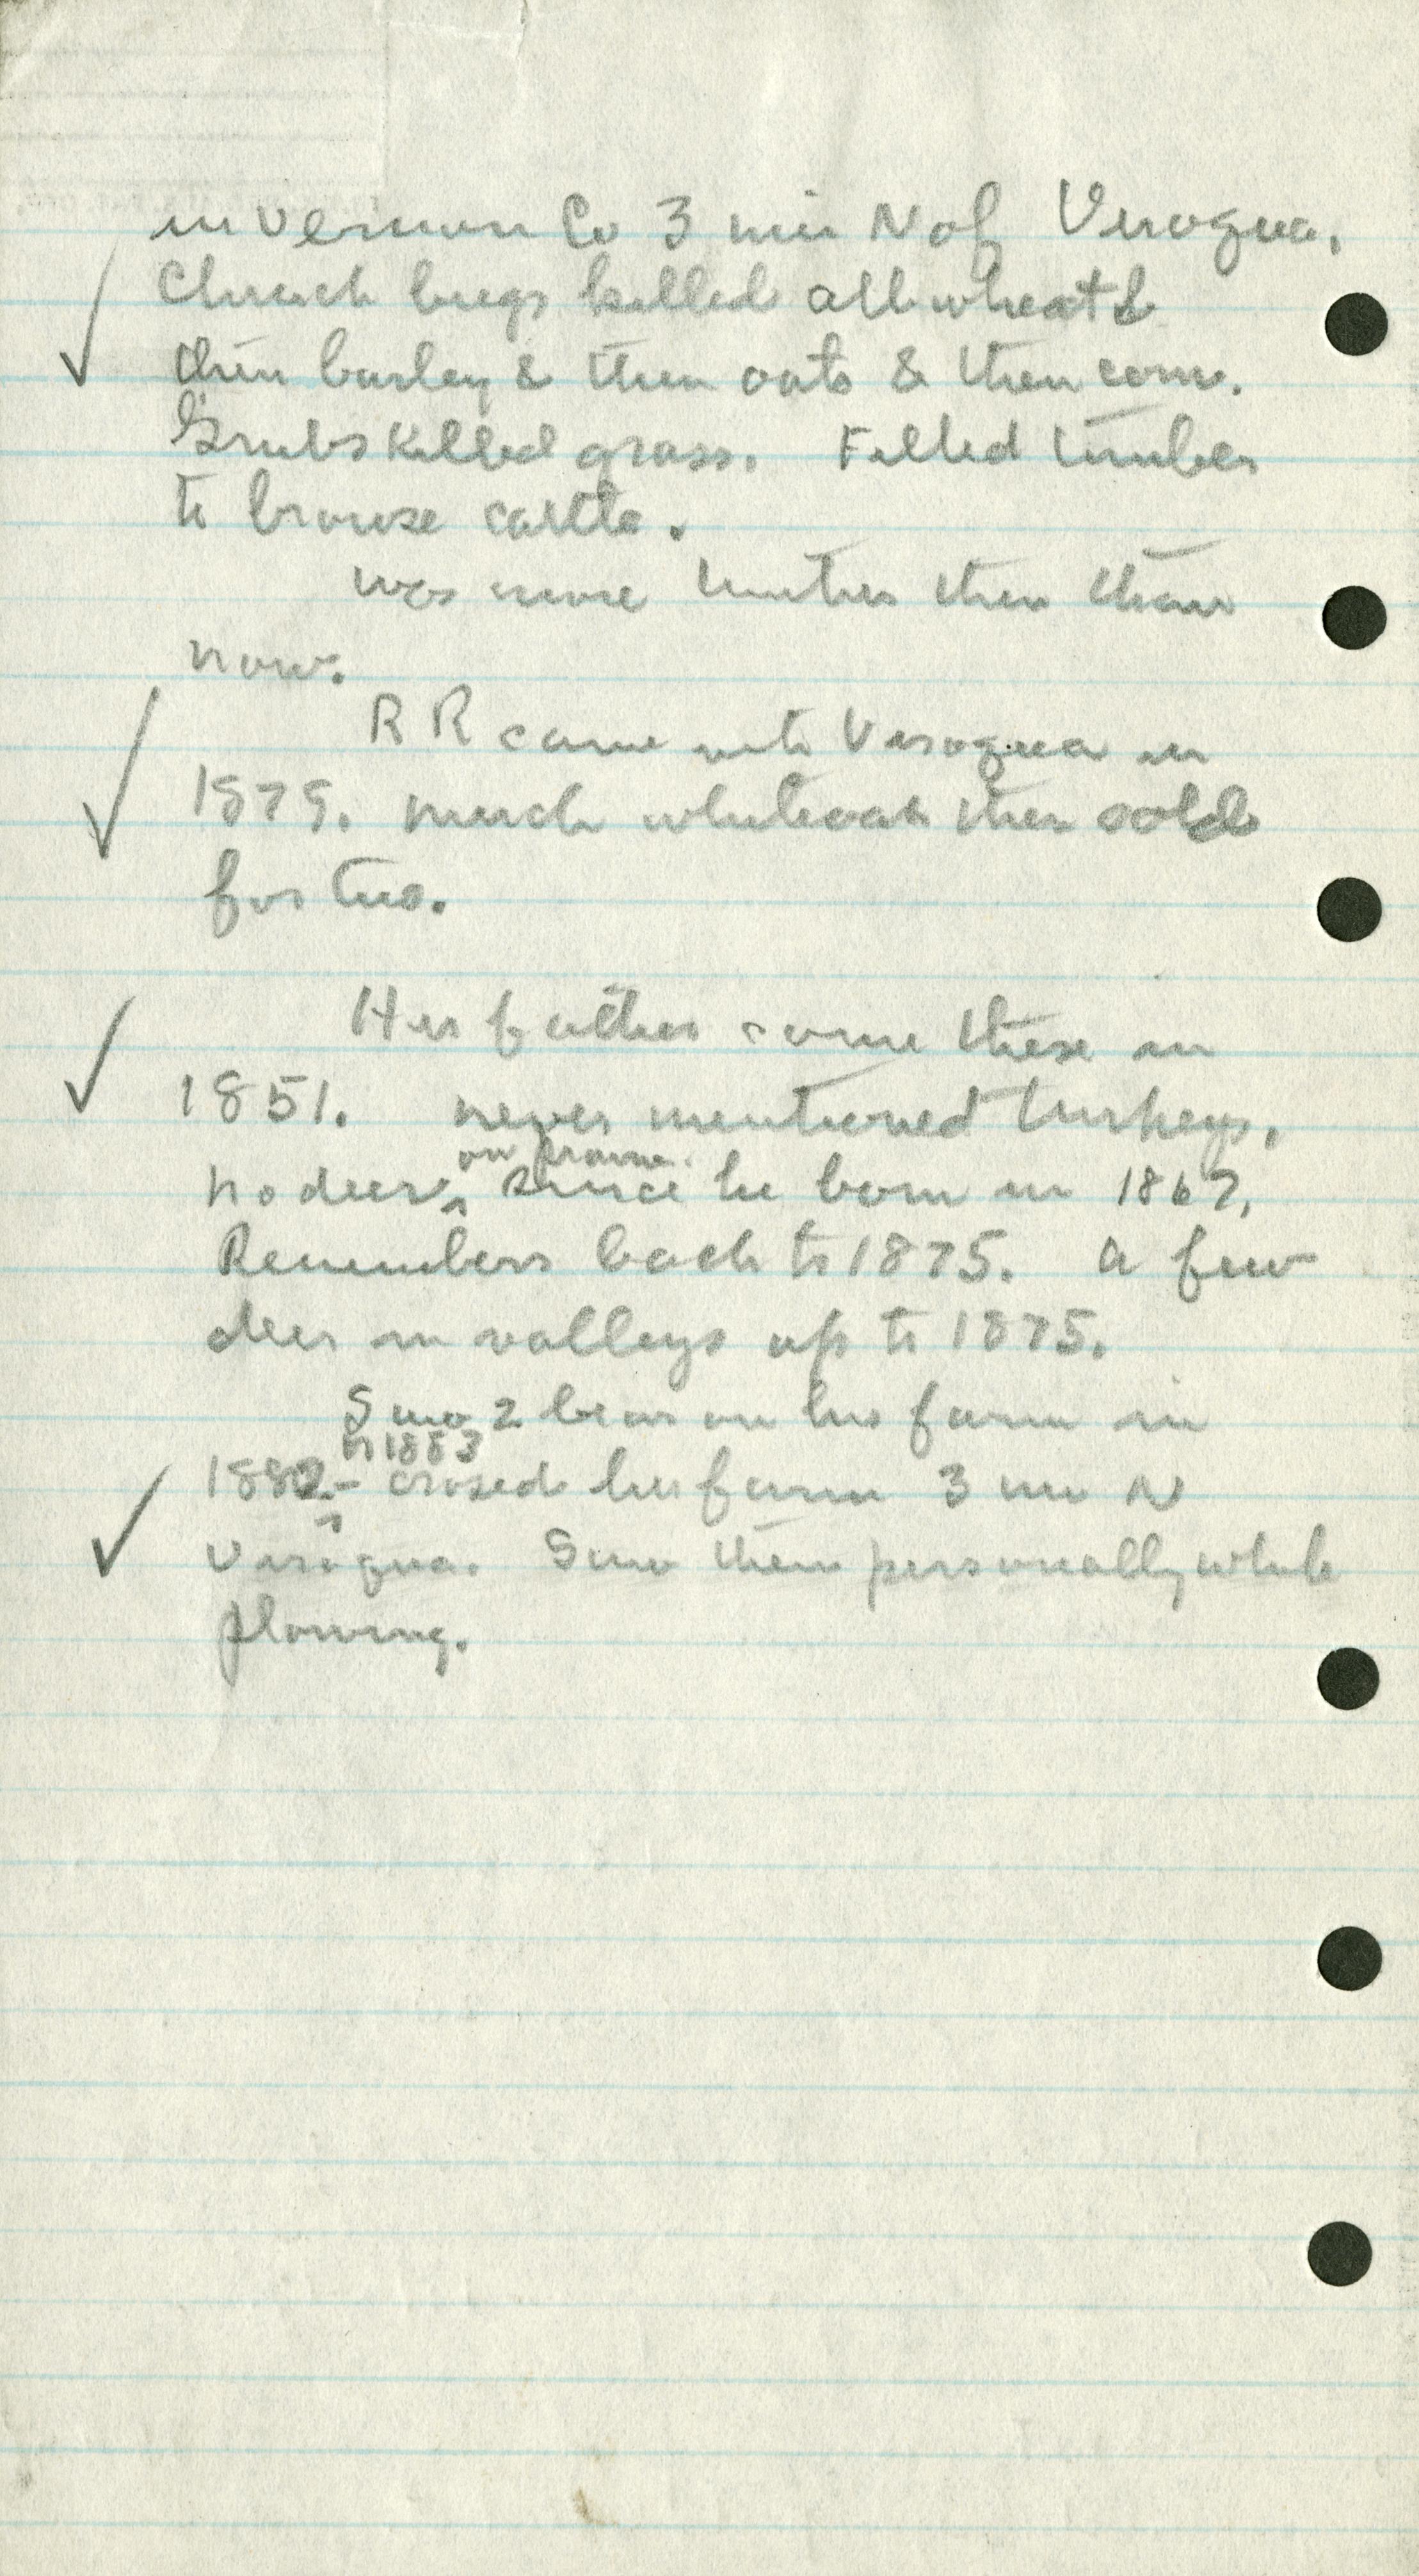 in Vernon Co 3 mi N of Viroqua.
Chinch bugs killed all wheat &
then barley & then oats & then corn.
Grubs killed grass. Felled timber
to browse cattle.
Was more timber then than
now.
RR came into Viroqua in
1879. Much white oak then sold
for ties.
His father came there in
1851. never mentioned turkeys.
on prairie
No deer ^ since he born in 1867.
Remembers back to 1875. A few
deer in valleys up to 1875.
Saw 2 bear on his farm in
or 1883
1882 - crossed his farm 3 mi N
Viroqua. Saw them personally while
plowing.